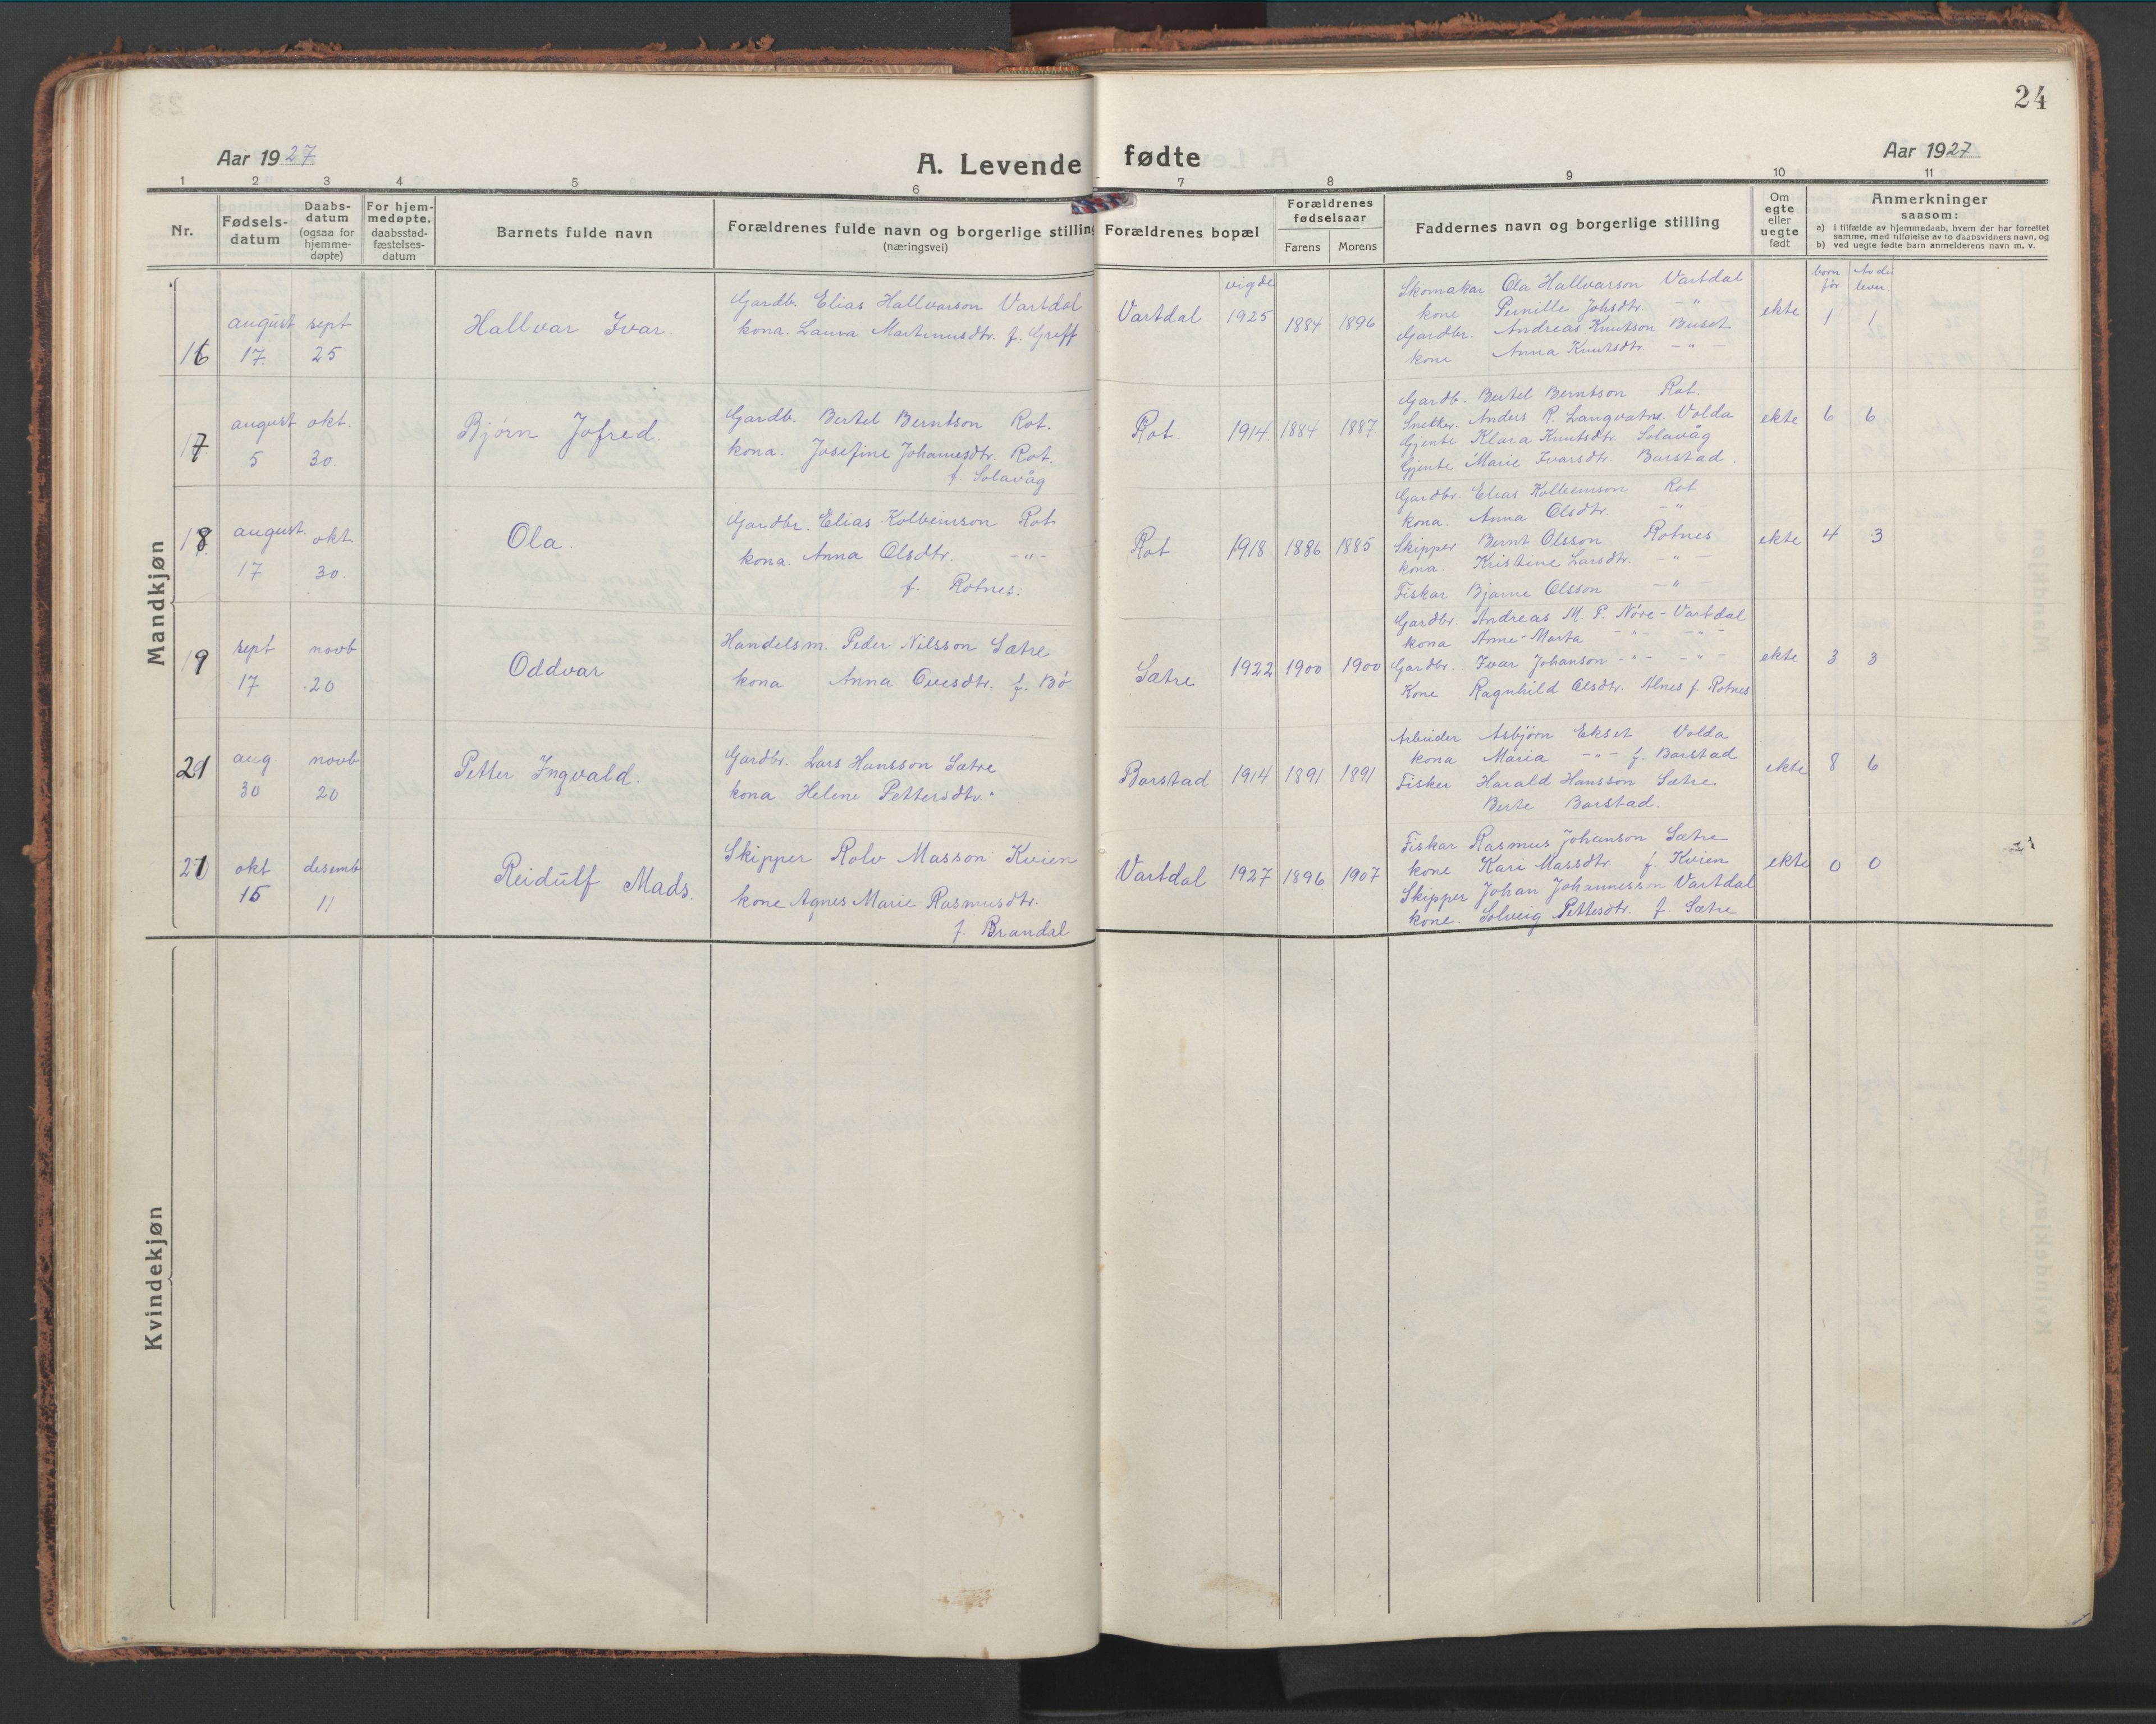 24
Aar 1927
A. Levende fødte
Aar 1927
1 2 3 4 5 6 7 8 9 10 11
Nr.
Fødsels-
datum
Daabs-
datum
(ogsaa for
hjemme-
døpte)
For hjem-
medøpte,
daabsstad-
fæstelses-
datum
Barnets fulde navn
Forældrenes fulde navn og borgerlige stilling
(næringsvei)
Forældrenes bopæl
Forældrenes
fødselsaar
Farens Morens
Faddernes navn og borgerlige stilling
Om
egte
eller
uegte
født
Anmerkninger
saasom:
a) i tilfælde av hjemmedaab, hvem der har forrettet
samme, med tilføielse av to daabsvidners navn, og
b) ved uegte fødte barn anmelderens navn m. v.
vigde
born
før
Av dei
lever.
Mandkjøn
16
august
17
sept
25
Hallvar Ivar
Gardb. Elias Hallvarson Vartdal
kona. Laura Martinusdtr. f. Greff
Vartdal 1925 1884 1896
Skomakar Ola Hallvarson Vartdal
kone Pernille Johsdtr. - " -
Gardbr. Andreas Knutson Buset
kone Anna Knutsdtr. - " -
ekte 1 1
17
august
5
okt.
30
Bjørn Jofred.
Gardb. Bertel Berntson Rot.
kona. Josefine Johannesdtr. Rot.
f. Solavåg
Rot. 1914 1884 1887
Gardb. Bertel Berntson Rot.
Snekker. Anders R. Langvatne. Volda
Gjente Klara Knutsdtr. Solavåg
Gjente Marie Ivarsdtr. Barstad.
ekte 6 6
18
august
17
okt
30.
Ola.
Gardbr. Elias Kolbeinson Rot
kona. Anna Olsdtr. - " -
f. Rotnes.
Rot 1918 1886 1885
Gardbr. Elias Kolbeinson Rot
kona. Anna Olsdtr. - " -
Skipper Bernt Olsson Rotnes
kona. Kristine Larsdtr. - " -
Fiskar Bjarne Olsson - " -
ekte 4 3
19
sept
17
novb
20
Oddvar
Handelsm. Peder Nilsson Sætre
kona Anna Ovesdtr. f. Bø
Sætre 1922 1900 1900
Gardbr. Andreas M. P. Nøre-Vartdal
kona Anne-Marta - " - - " -
Gardbr. Ivar Johanson - " - - " -
Kone Ragnhild Olsdtr. Alnes f. Rotnes
ekte 3 3
20
aug.
30
novb
20
Petter Ingvald.
Gardbr. Lars Hansson Sætre
kona Helene Pettersdtr.
Barstad 1914 1891 1891
Arbeider Asbjørn Ekset Volda
kona Maria - " - f. Barstad
Fisker Harald Hansson Sætre
Berte Barstad.
ekte 8 6
21
okt
15
desemb
11
Reidulf Mads.
Skipper Rolv Masson Kvien
kone Agnes Marie Rasmusdtr.
f. Brandal
Vartdal 1927 1896 1907
Fiskar Rasmus Johanson Sætre
kone Kari Massdtr. f. Kvien
Skipper Johan Johannesson Vartdal
kone. Solveig Pettesdtr. f. Sætre
ekte 0 0
Kvindekjøn